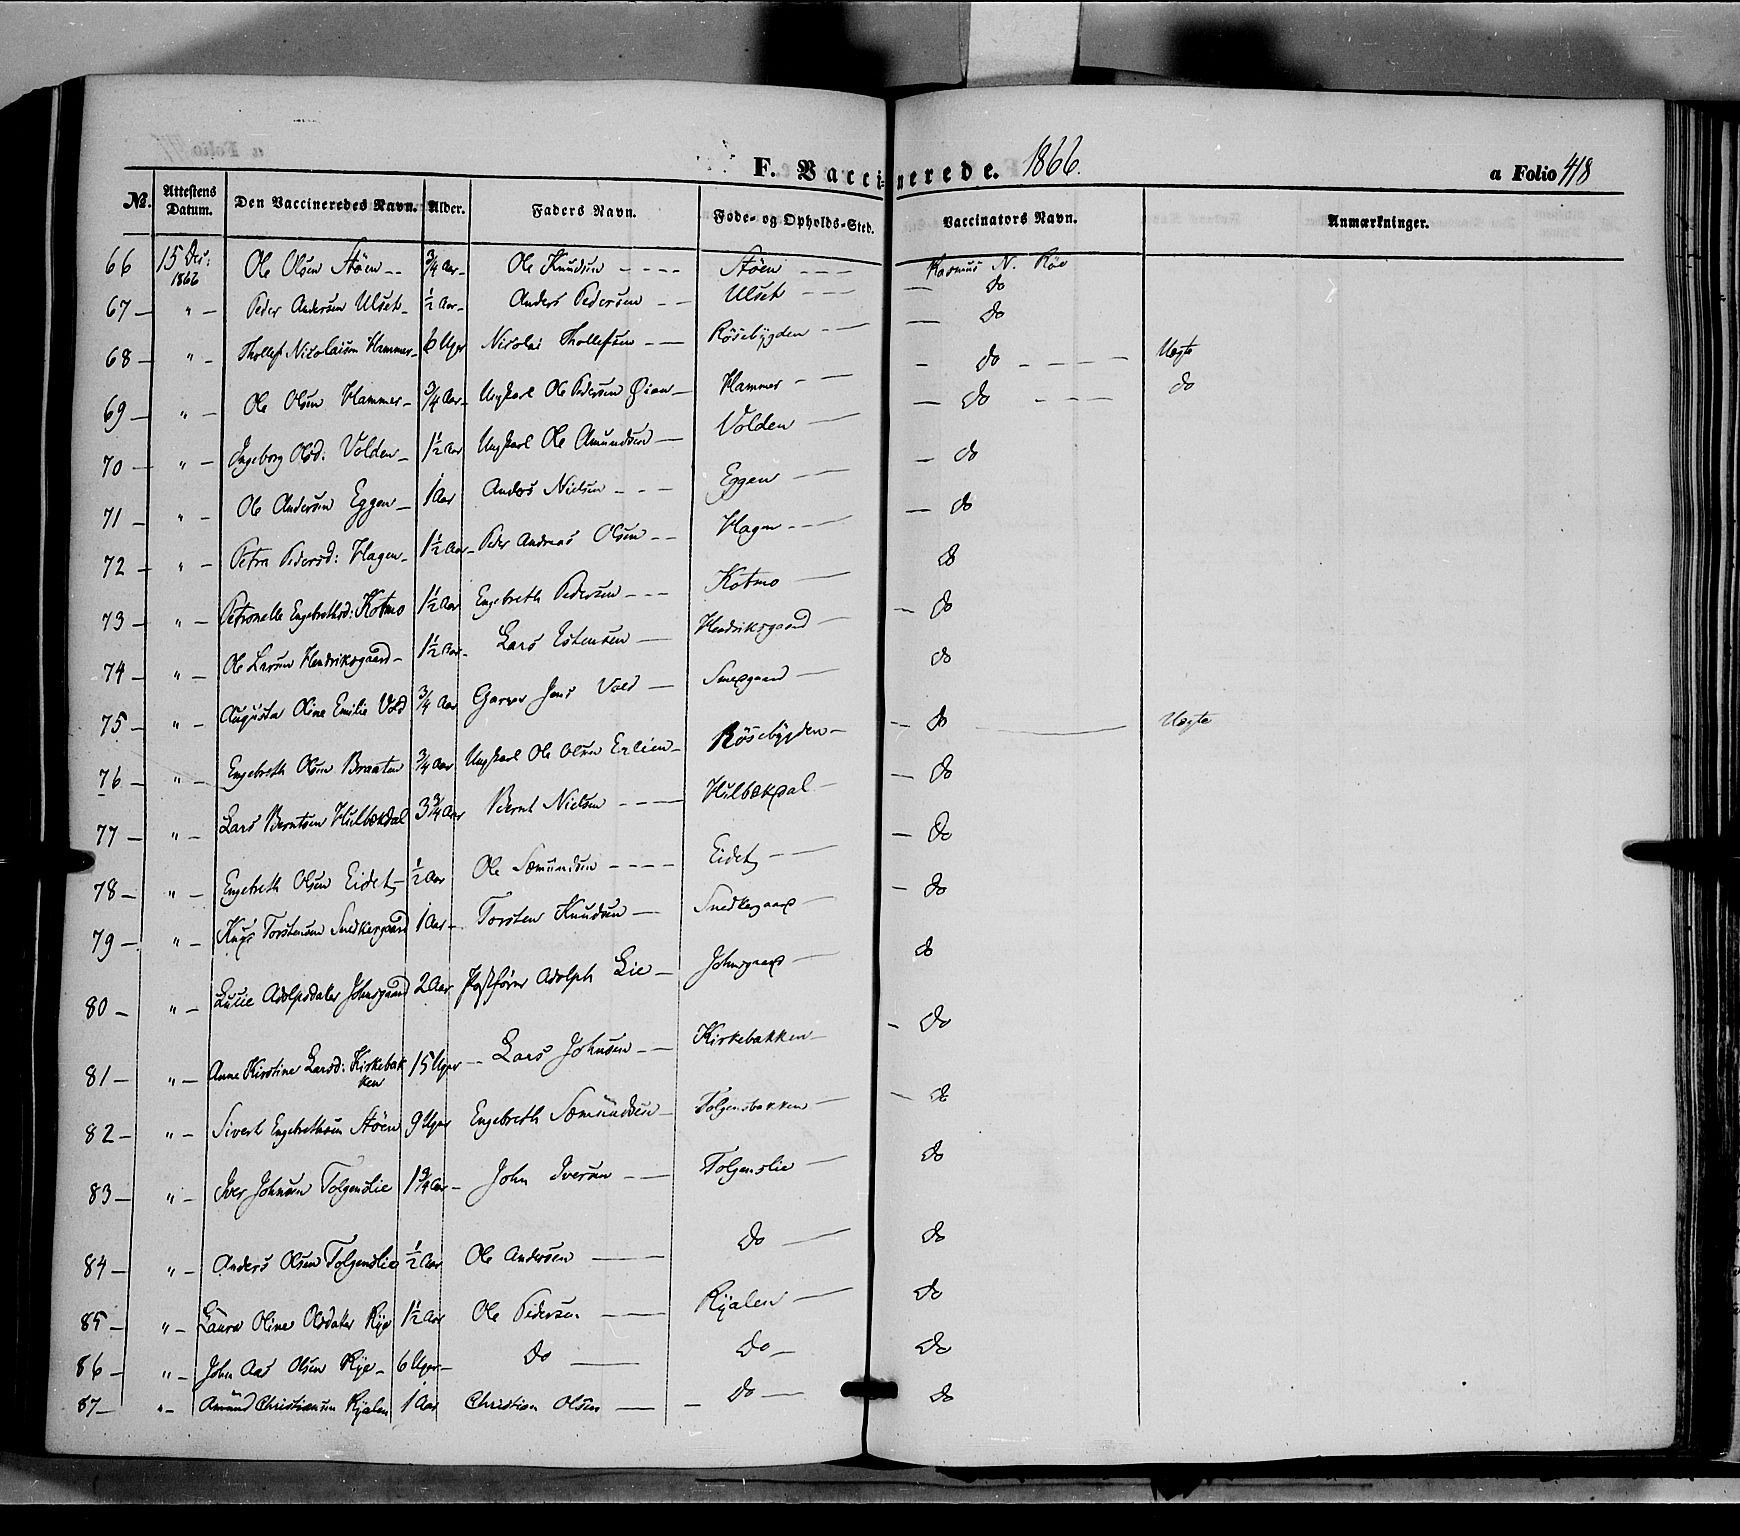 F. Vaccinerede. 1866. a Folio 418
№ Attestens Datum. Den Vaccineredes Navn. Alder. Faders Navn. Føde- og Opholds-Sted. Vaccinators Navn. Anmærkninger.
66 15 Dec: 1866 Ole Olsen Støen 3/4 Aar Ole Knudsen Støen Rasmus N. Røe
67 " Peder Andersen Ulset 1/2 Aar Anders Pedersen Ulset do
68 " Thollef Nicolaisen Hammer 6 Uger Nicolai Thollefsen Røsebygden do
69 " Ole Olsen Hammer 3/4 Aar Ungkarl Ole Pedersen Øian Hammer do Uægte
70 " Ingeborg Olsd: Volden 1 1/2 Aar Ungkarl Ole Amundsen Volden do do
71 " Ole Andersen Eggen 1 Aar Anders Nielsen Eggen do
72 " Petra Pedersd: Hagen 1 1/2 Aar Peder Andreas Olsen Hagen do
73 " Petronelle Engebrethsd: Kotmo 1 1/2 Aar Engebreth Pedersen Kotmo do
74 " Ole Larsen Hendriksgaard 1 1/2 Aar Lars Estensen Hendriksgaard do
75 " Augusta Oline Emilie Vold 3/4 Aar Garver Jens Vold do
76 " Engebreth Olsen Braaten 3/4 Aar Ungkarl Ole Olsen Erlien Røsebygden do Uægte
77 " Lars Berntsen Hulbækdal 3 3/4 Aar Bernt Nielsen Hulbækdal do
78 " Engebreth Olsen Eidet 1/2 Aar Ole Sæmundsen Eidet do
79 " Torstensen Snedkergaard 1 Aar Torsten Knudsen Snedkergaard do
80 " Lucie Adolpsdatter Johnsgaard 2 Aar Adolph Lie Johnsgaard do
81 " Anne Kirstine Larsd: Kirkebakken 15 Uger Lars Johnsen Kirkebakken do
82 " Sivert Engebrethsen Støen 9 Uger Engebreth Sæmundsen Tolgensbakken do
83 " Iver Johnsen Tolgenslie 1 3/4 Aar John Iversen Tolgenslie do
84 " Anders Olsen Tolgenslie 1/2 Aar Ole Andersen do do
85 " Laura Oline Olsdater Rye 1 1/2 Aar Ole Pedersen Ryalen do
86 " John Aas Olsen Rye 6 Uger Do Do do
87 " Amund Christiansen Ryalen 1 Aar Christian Olsen Do do